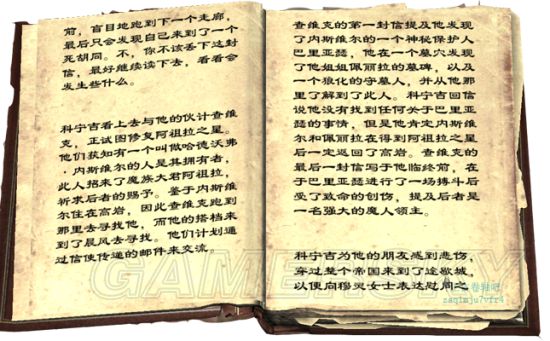 前，盲目地跑到下一个走廊，
最后只会发现自己来到了一个
死胡同。不，你不该丢下这封
信，最好继续读下去，看看会
发生些什么。
科宁吉看上去与他的伙计查维
克，正试图修复阿祖拉之星。
他们获知有一个叫做哈德沃弗
·内斯维尔的人是其拥有者，
此人招来了魔族大君阿祖拉，
祈求后者的赐予。鉴于内斯维
尔住在高岩，因此查维克跑到
那里去寻找他，而他的搭档来
到了晨风去寻找。他们计划通
过信使传递的邮件来交流。
查维克的第一封信提及他发现
了内斯维尔的一个神秘保护人
巴里亚瑟，他在一个墓穴发现
了他姐姐佩丽拉的墓碑，以及
一个狼化的守墓人，并从他那
里了解到了此人。科宁吉回信
说他没有找到任何关于巴里亚
瑟的事情，但是他肯定内斯维
尔和佩丽拉在得到阿祖拉之星
后一定返回了高岩。查维克的
最后一封信写于他临终前，在
于巴里亚瑟进行了一场搏斗后
受了致命的创伤，提及后者是
一名强大的魔人领主。
科宁吉为他的朋友感到悲伤，
穿过整个帝国来到了途歇城，
以便向穆灵女士表达慰问之
GAMERSKY
卷轴吧
zaqimju7vfr4